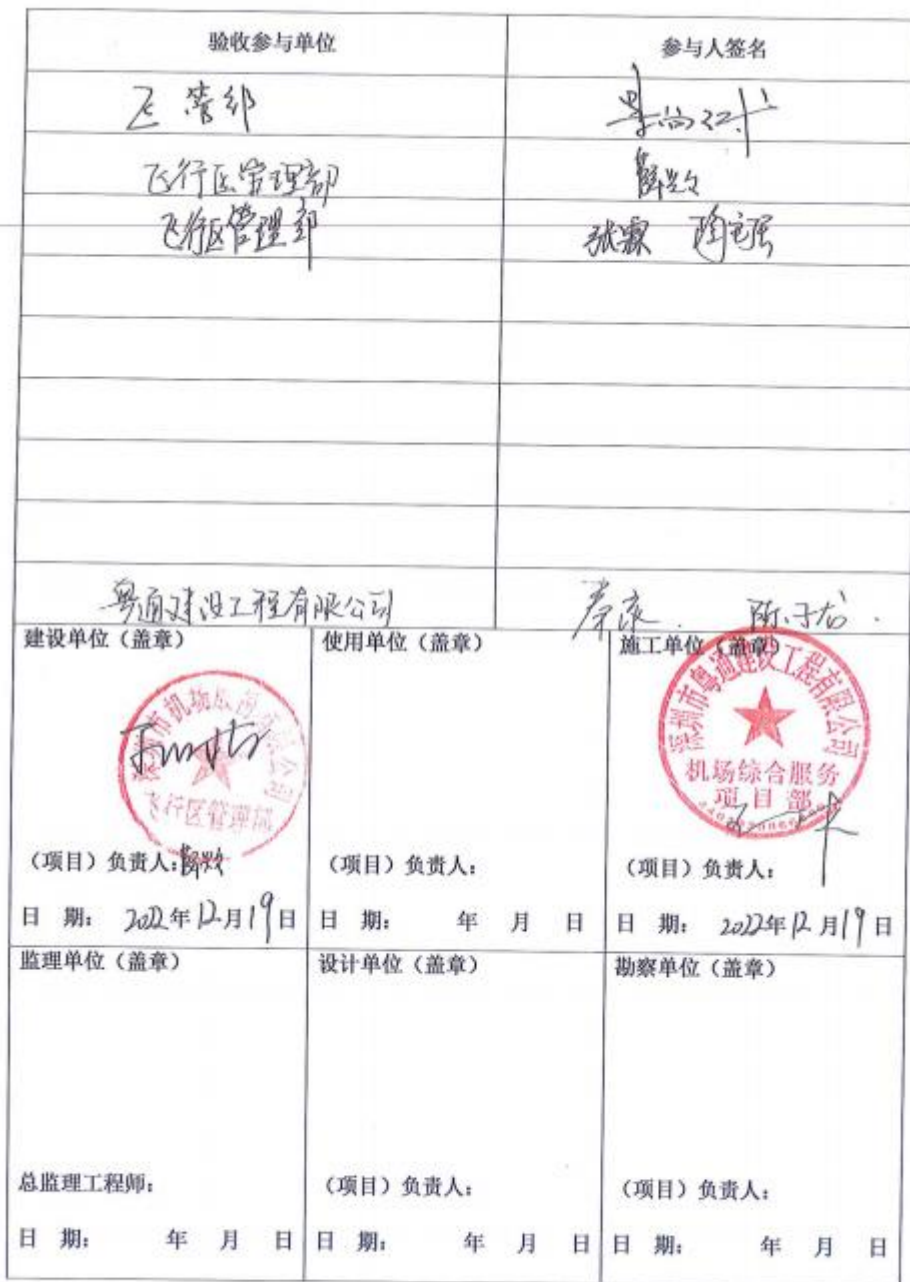 验收参与单位 参与人签名
飞管部
飞行区管理部
飞行区管理部 张霖
粤通建设工程有限公司
建设单位（盖章） 使用单位（盖章） 施工单位（盖章）
深圳市机场股份有限公司
飞行区管理部
深圳市粤通建设工程有限公司
机场综合服务
项目部
（项目）负责人： （项目）负责人： （项目）负责人：
日 期： 2022年12月19日 日 期： 年 月 日 日 期： 2022年12月19日
监理单位（盖章） 设计单位（盖章） 勘察单位（盖章）
总监理工程师： （项目）负责人： （项目）负责人：
日 期： 年 月 日 日 期： 年 月 日 日 期： 年 月 日